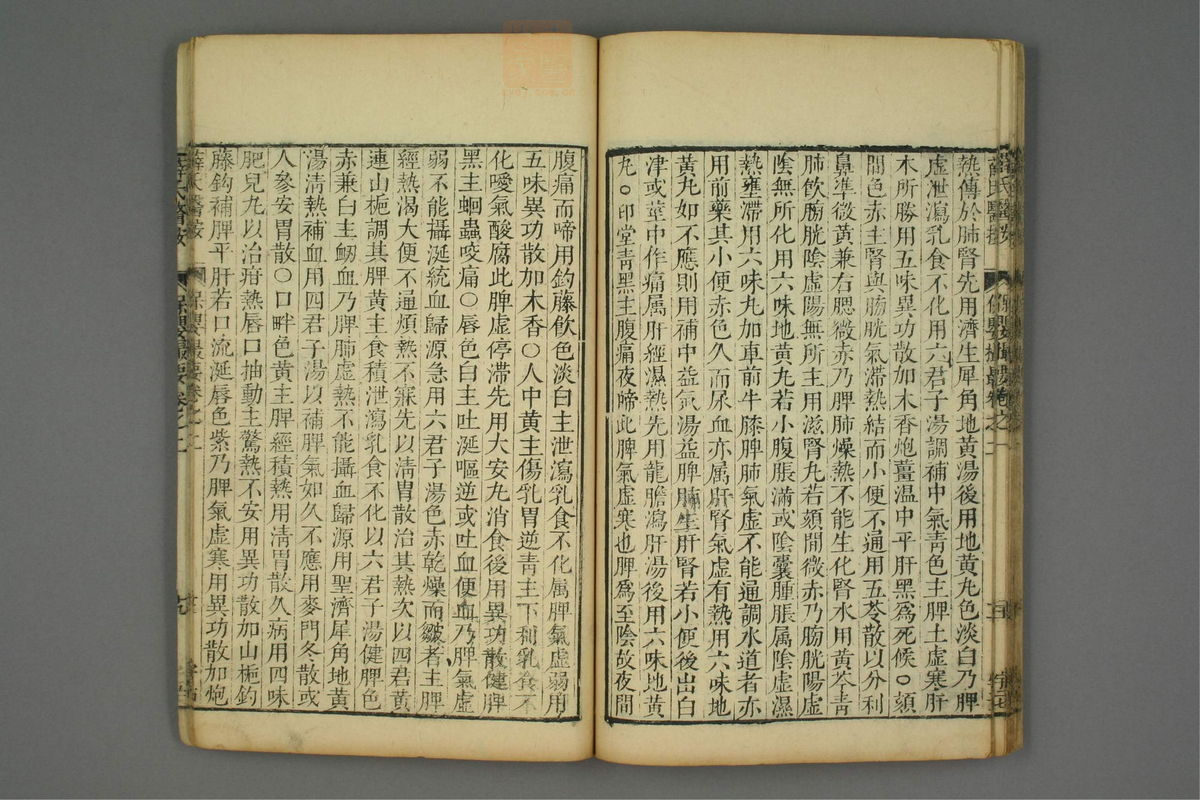 熱傳於肺腎先用濟生犀角地黃湯後用地黃丸色淡白乃脾
虛泄瀉乳食不化用六君子湯調補中氣靑色主脾土虛寒肝
木所勝用五味異功散加木香炮薑温中平肝黑爲死候○頦
間色赤主腎與膀胱氣滯熱結而小便不通用五苓散以分利
鼻準微黃兼右腮微赤乃脾肺燥熱不能生化腎水用黃芩靑
肺飲膀胱陰虛陽無所主用滋腎丸若頦間微赤乃膀胱陽虛
陰無所化用六味地黃丸若小腹脹滿或陰囊腫脹属陰虛濕
熱壅滯用六味丸加車前牛膝脾肺氣虛不能通調水道者亦
用前藥其小便赤色久而尿血亦属肝腎氣虛有熱用六味地
黃丸如不應則用補中益氣湯益脾肺生肝腎若小便後出白
津或莖中作痛属肝經濕熱先用龍膽瀉肝湯後用六味地黃
丸○印堂靑黑主腹痛夜啼此脾氣虛寒也脾爲至陰故夜間
腹痛而啼用鈎藤飲色淡白主泄瀉乳食不化属脾氣虛弱用
五味異功散加木香○人中黃主傷乳胃逆靑主下利乳食不
化噯氣酸腐此脾虛停滯先用大安丸消食後用異功散健脾
黑主蛔蟲咬痛○唇色白主吐涎嘔逆或吐血便血乃脾氣虛
弱不能攝涎統血歸源急用六君子湯色赤乾燥而皺者主脾
經熱渴大便不通煩熱不寐先以清胃散治其熱次以四君黃
連山梔調其脾黃主食積泄瀉乳食不化以六君子湯健脾色
赤兼白主衂血乃脾肺虛熱不能攝血歸源用聖濟犀角地黃
湯清熱補血用四君子湯以補脾氣如久不應用麥門冬散或
人參安胃散○口畔色黃主脾經積熱用清胃散久病用四味
肥兒丸以治疳熱唇口抽動主驚熱不安用異功散加山梔鈎
藤鈎補脾平肝若口流涎唇色紫乃脾氣虛寒用異功散加炮
薛氏醫按 保嬰撮要卷之一